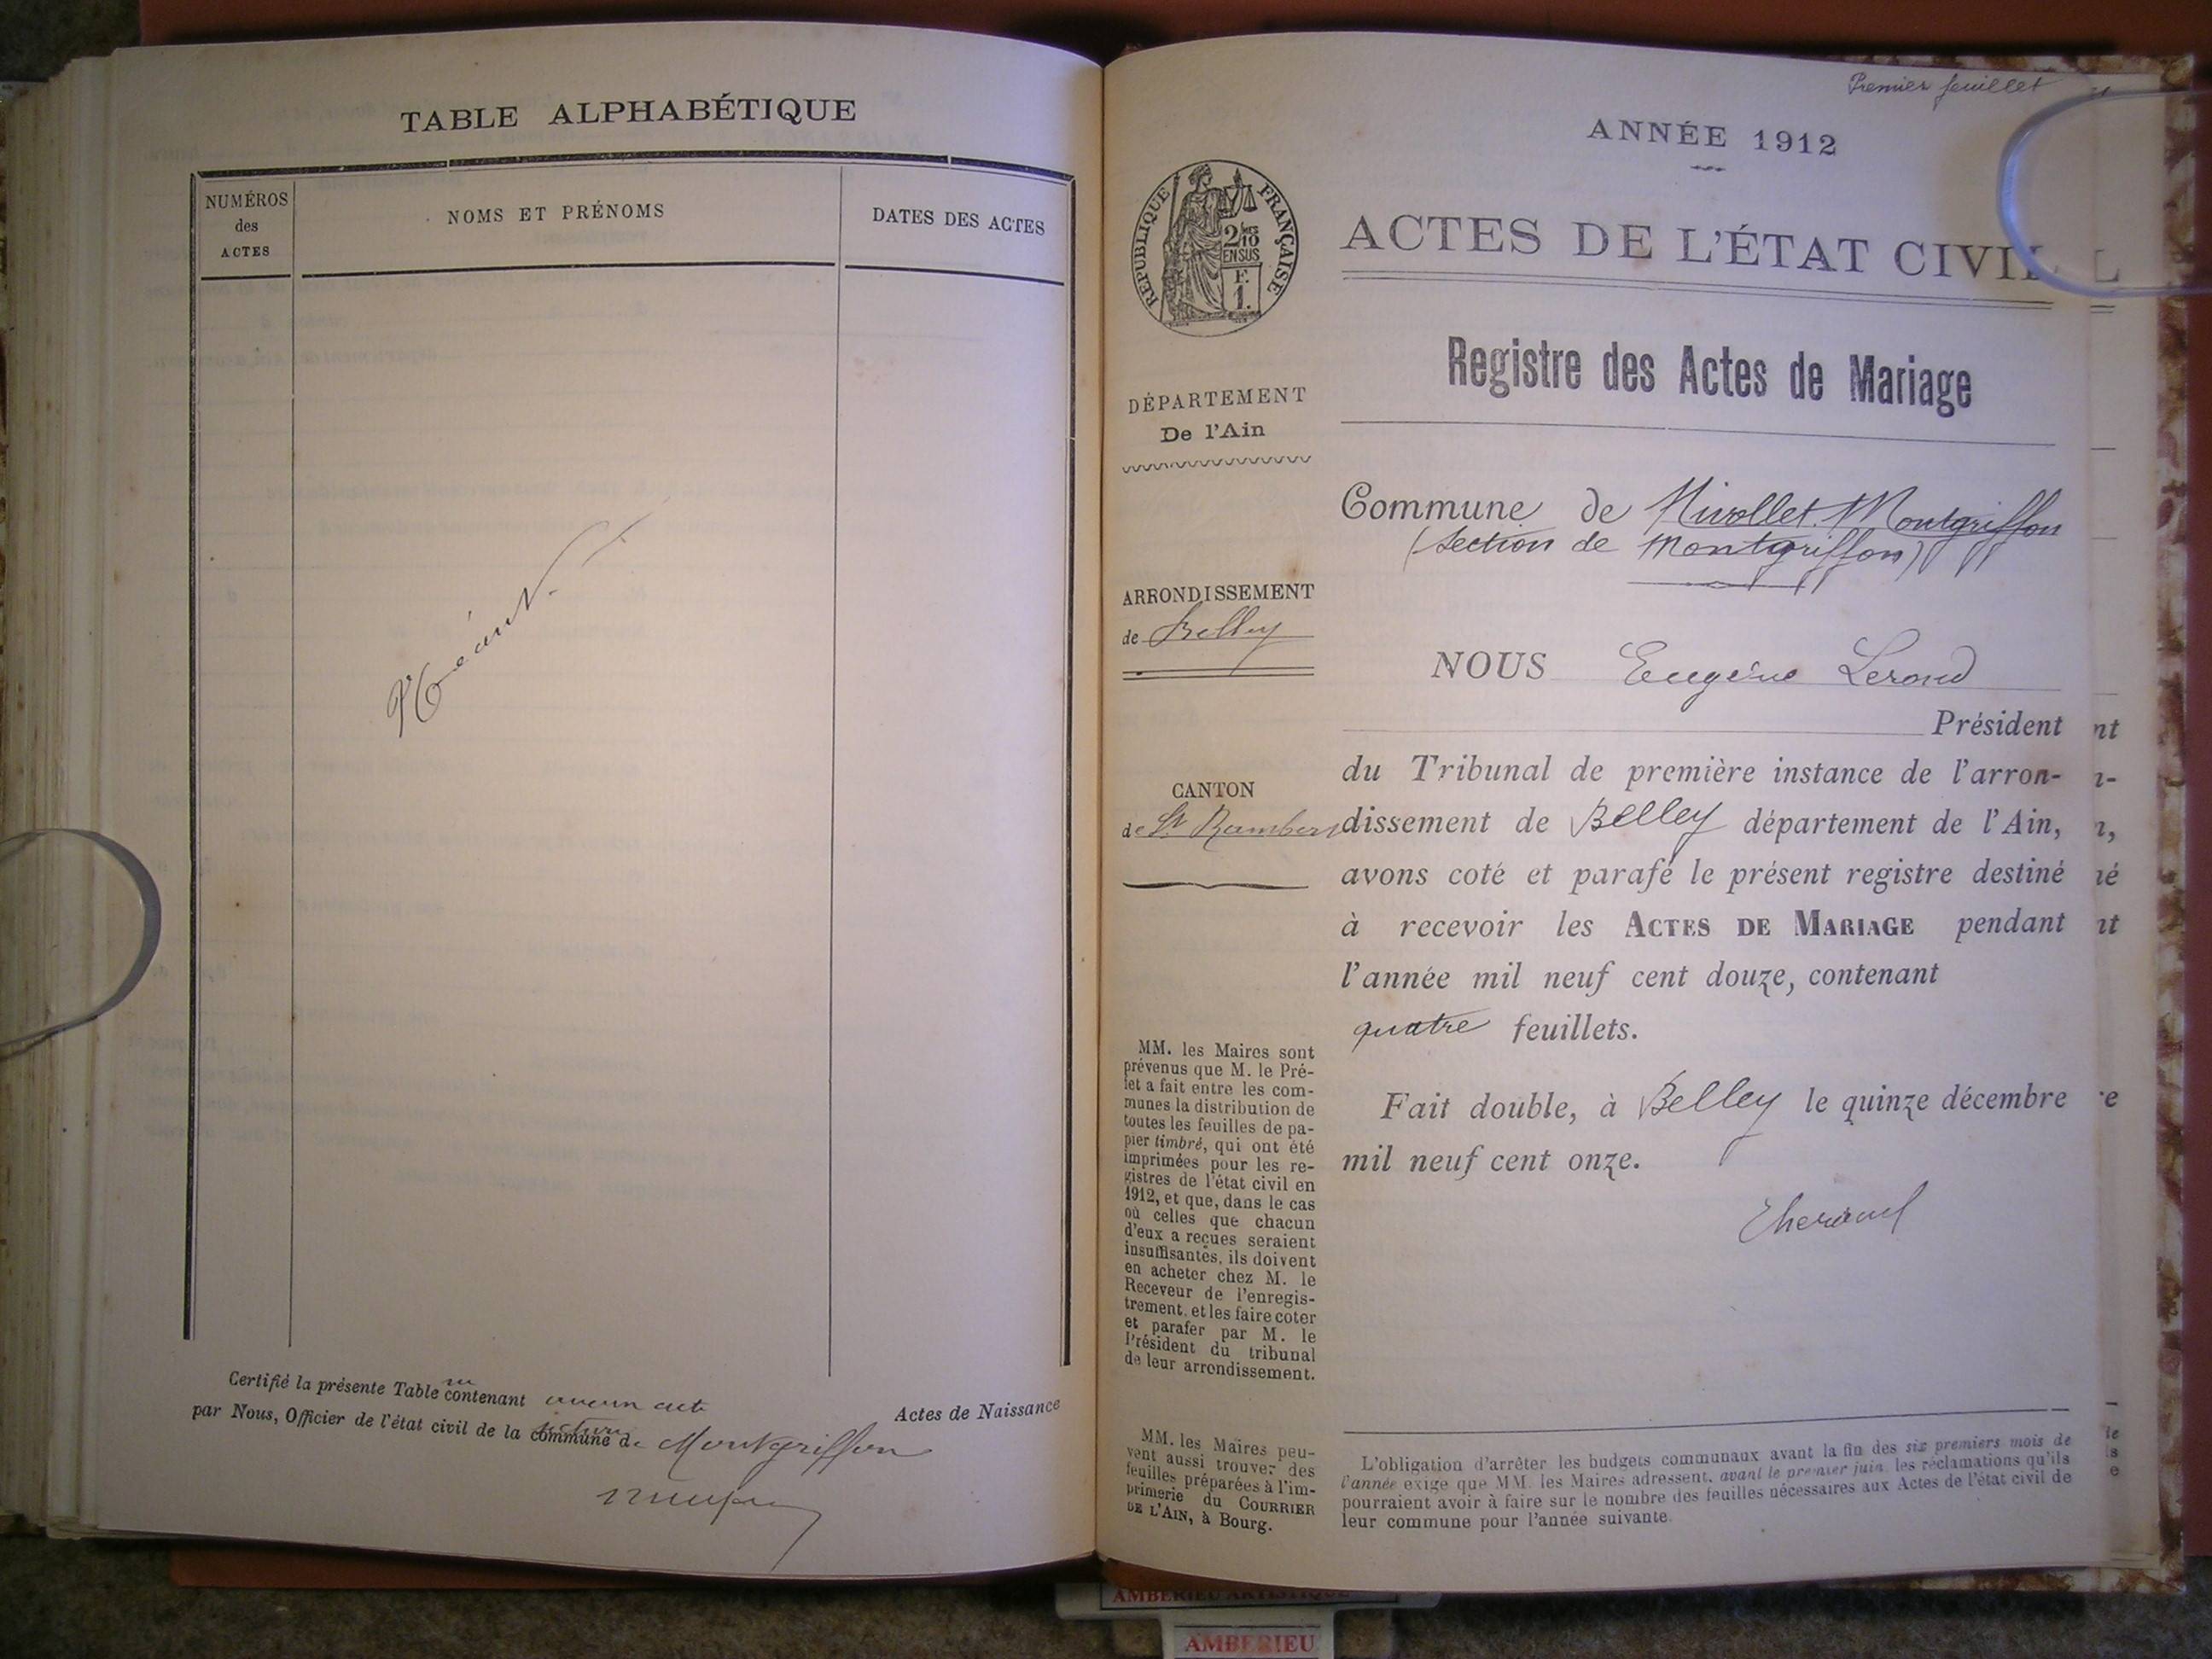 TABLE ALPHABÉTIQUE
NUMÉROS
des
ACTES
NOMS ET PRÉNOMS
DATES DES ACTES
Néant
Certifié la présente Table contenant aucun acte
Actes de Naissance
par Nous, Officier de l'état civil de la commune de Montgriffon
section
Premier feuillet
ANNÉE 1912
RÉPUBLIQUE FRANÇAISE
2/10
EN SUS
F.
1.
ACTES DE L'ÉTAT CIVIL
Registre des Actes de Mariage
DÉPARTEMENT
De l'Ain
Commune de Nivollet-Montgriffon
(Section de Montgriffon)
ARRONDISSEMENT
de Belley
NOUS Eugène Lerond
Président
du Tribunal de première instance de l'arron-
CANTON
de St Rambert
dissement de Belley département de l'Ain,
avons coté et parafé le présent registre destiné
à recevoir les ACTES DE MARIAGE pendant
l'année mil neuf cent douze, contenant
quatre feuillets.
Fait double, à Belley le quinze décembre
mil neuf cent onze.
MM. les Maires sont
prévenus que M. le Pré-
fet a fait entre les com-
munes la distribution de
toutes les feuilles de pa-
pier timbré, qui ont été
imprimées pour les re-
gistres de l'état civil en
1912, et que, dans le cas
où celles que chacun
d'eux a reçues seraient
insuffisantes, ils doivent
en acheter chez M. le
Receveur de l'enregis-
trement, et les faire coter
et parafer par M. le
Président du tribunal
de leur arrondissement.
MM. les Maires peu-
vent aussi trouver des
feuilles préparées à l'im-
primerie du COURRIER
DE L'AIN, à Bourg.
L'obligation d'arrêter les budgets communaux avant la fin des six premiers mois de
l'année exige que MM. les Maires adressent, avant le premier juin, les réclamations qu'ils
pourraient avoir à faire sur le nombre des feuilles nécessaires aux Actes de l'état civil de
leur commune pour l'année suivante.
AMBERIEU ARTISTIQUE
AMBERIEU